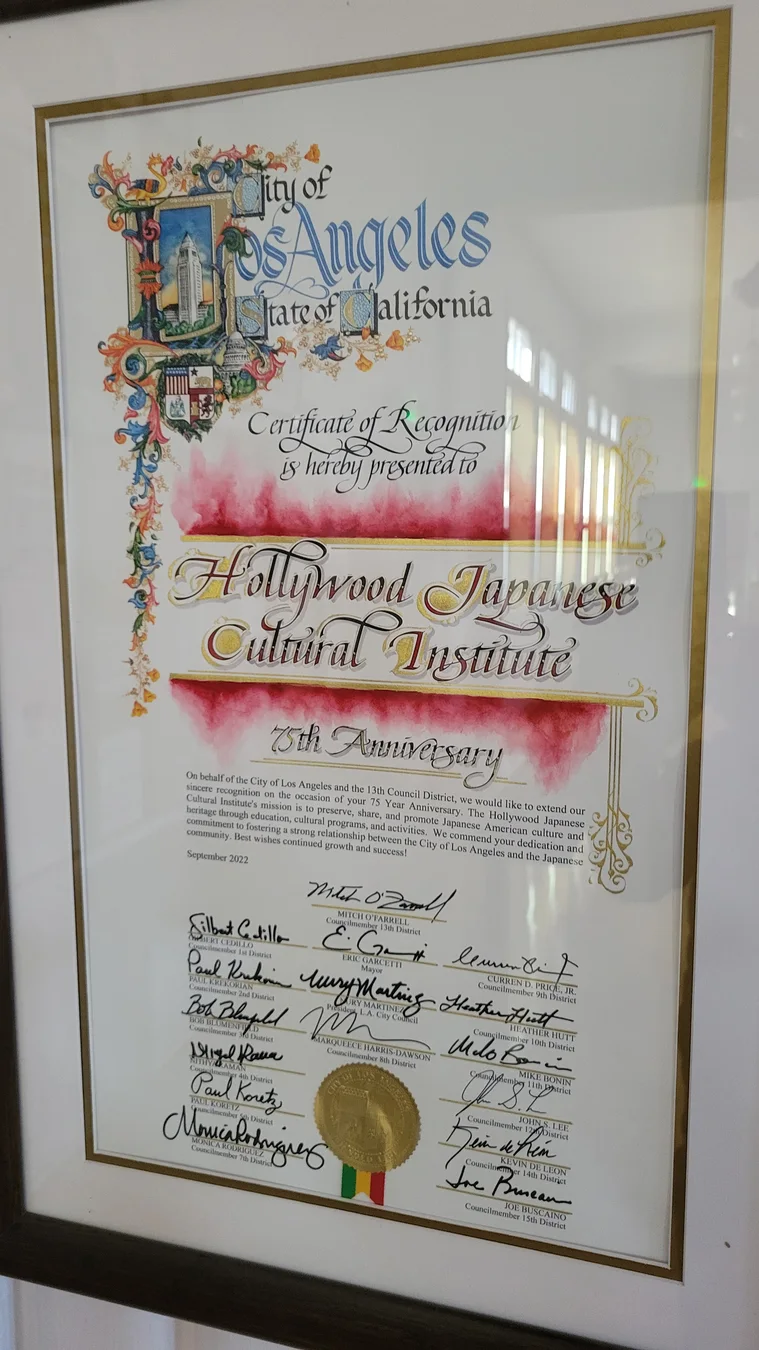 City of
Los Angeles
State of California
Certificate of Recognition
is hereby presented to
Hollywood Japanese
Cultural Institute
75th Anniversary
On behalf of the City of Los Angeles and the 13th Council District, we would like to extend our
sincere recognition on the occasion of your 75 Year Anniversary. The Hollywood Japanese
Cultural Institute's mission is to preserve, share, and promote Japanese American culture and
heritage through education, cultural programs, and activities. We commend your dedication and
commitment to fostering a strong relationship between the City of Los Angeles and the Japanese
community. Best wishes continued growth and success!
September 2022
Mitch O'Farrell
MITCH O'FARRELL
Councilmember 13th District
Gilbert Cedillo
GILBERT CEDILLO
Councilmember 1st District
E. Garcetti
ERIC GARCETTI
Mayor
Curren D. Price, Jr.
CURREN D. PRICE, JR.
Councilmember 9th District
Paul Krekorian
PAUL KREKORIAN
Councilmember 2nd District
Nury Martinez
NURY MARTINEZ
President, L.A. City Council
Heather Hutt
HEATHER HUTT
Councilmember 10th District
Bob Blumenfield
BOB BLUMENFIELD
Councilmember 3rd District
MARQUEECE HARRIS-DAWSON
Councilmember 8th District
Mike Bonin
MIKE BONIN
Councilmember 11th District
NITHYA RAMAN
Councilmember 4th District
JOHN S. LEE
Councilmember 12th District
Paul Koretz
PAUL KORETZ
Councilmember 5th District
Kevin de León
KEVIN DE LEON
Councilmember 14th District
Monica Rodriguez
MONICA RODRIGUEZ
Councilmember 7th District
Joe Buscaino
JOE BUSCAINO
Councilmember 15th District